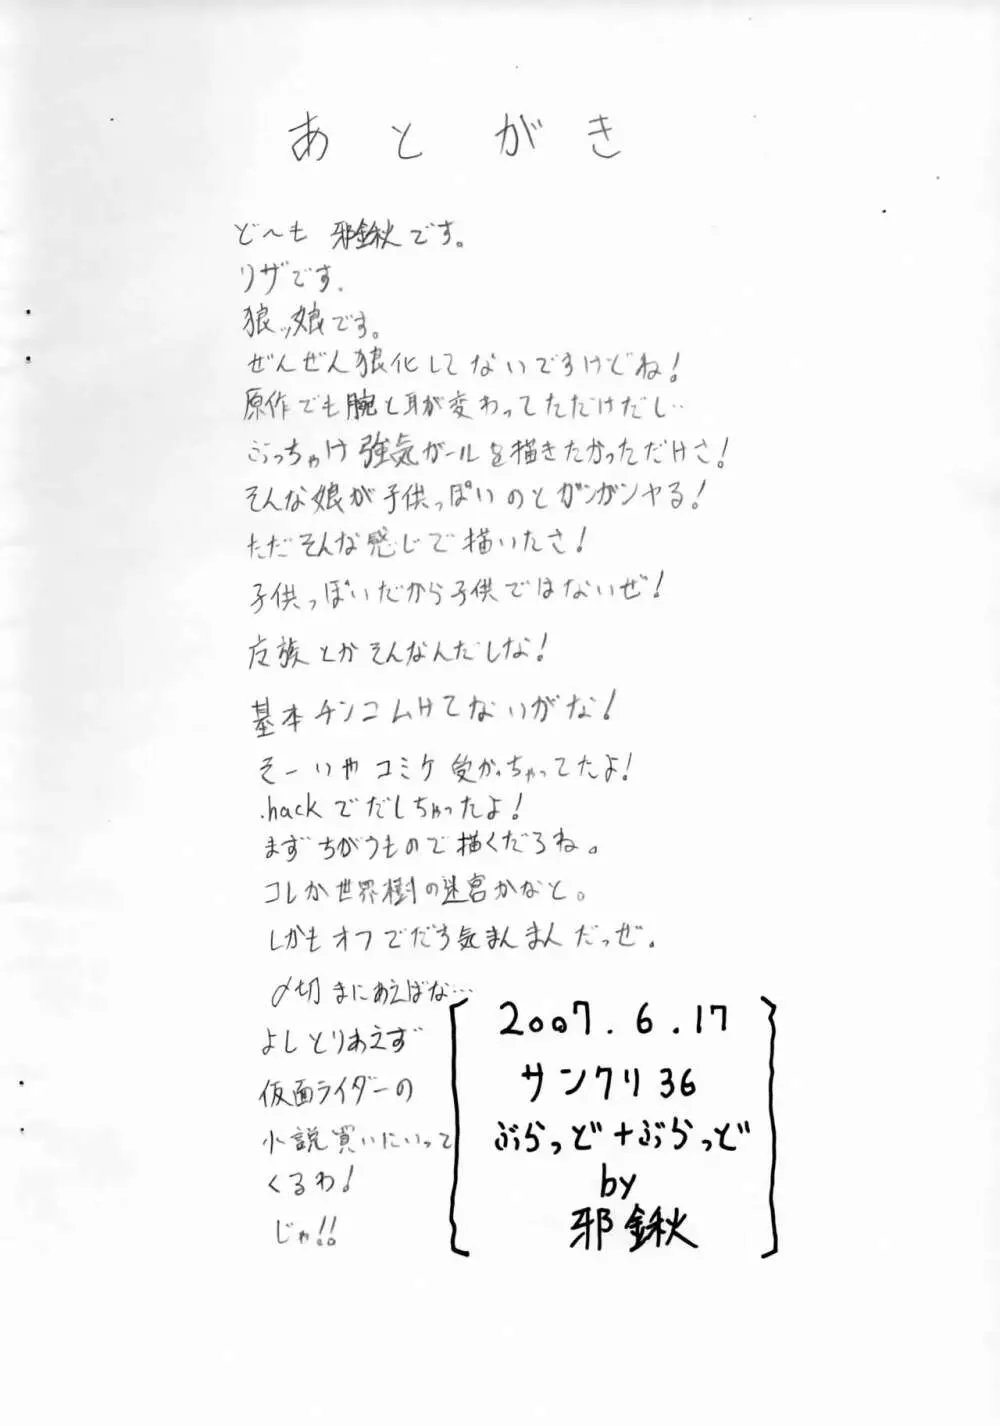 あとがき
ど〜も 邪鍬です。
リザです.
狼ッ娘です。
ぜんぜん狼化してないですけどね!
原作でも腕と耳が変わってただけだし‥
ぶっちゃけ 強気ガールを描きたかっただけさ!
そんな娘が子供っぽいのとガンガンヤる!
ただそんな感じで描いたさ!
子供っぽいだから子供ではないぜ!
皮族とかそんなんだしな!
基本チンコムけてないがな!
そーいやコミケ受かっちゃってたよ!
.hackでだしちゃったよ!
まずちがうもので描くだろね。
コレか世界樹の迷宮かなと。
しかもオフでだす気まんまんだっぜ.
〆切まにあえばな…
よしとりあえず
仮面ライダーの
小説買いにいって
くるわ!
じゃ!!
2007.6.17
サンクリ36
ぶらっど+ぶらっど
by
邪鍬